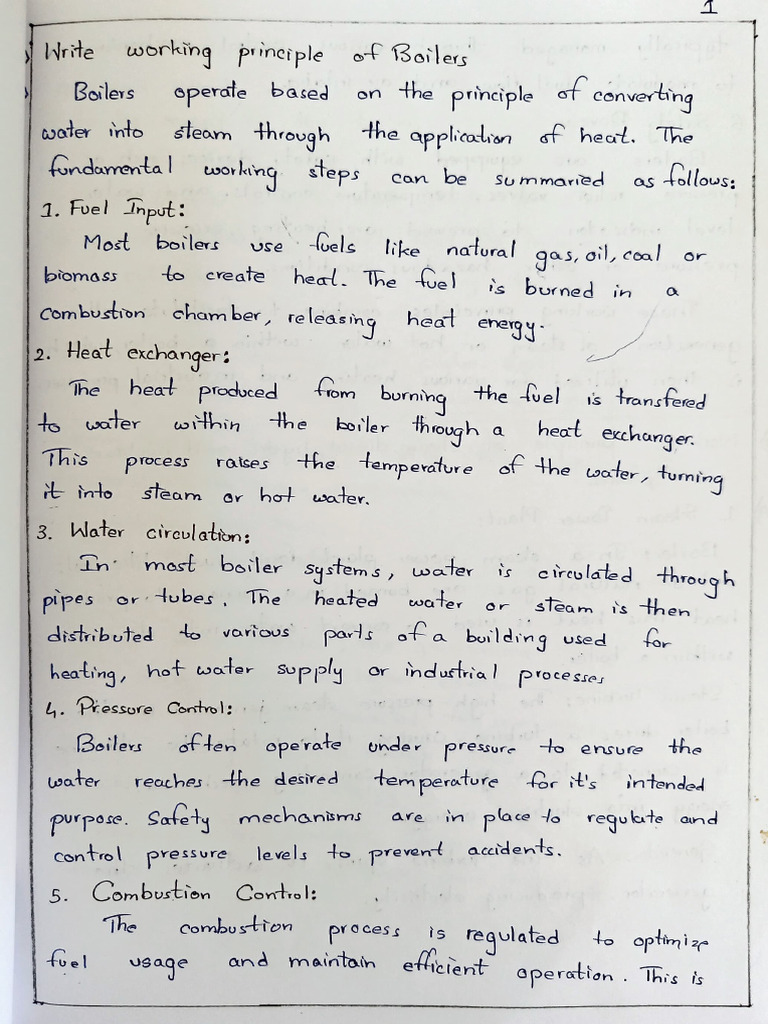 1
Write working principle of Boilers
Boilers operate based on the principle of converting
water into steam through the application of heat. The
fundamental working steps can be summaried as follows:
1. Fuel Input:
Most boilers use fuels like natural gas, oil, coal or
biomass to create heat. The fuel is burned in a
combustion chamber, releasing heat energy.
2. Heat exchanger:
The heat produced from burning the fuel is transfered
to water within the boiler through a heat exchanger.
This process raises the temperature of the water, turning
it into steam or hot water.
3. Water circulation:
In most boiler systems, water is circulated through
pipes or tubes. The heated water or steam is then
distributed to various parts of a building used for
heating, hot water supply or industrial processes
4. Pressure Control:
Boilers often operate under pressure to ensure the
water reaches the desired temperature for it's intended
purpose. Safety mechanisms are in place to regulate and
control pressure levels to prevent accidents.
5. Combustion Control:
The combustion process is regulated to optimize
fuel usage and maintain efficient operation. This is